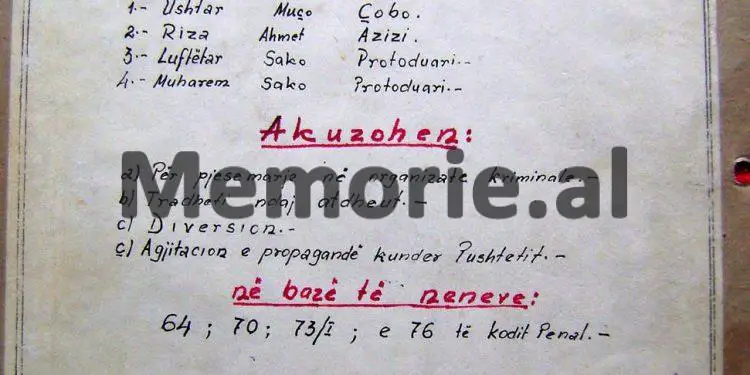 1.- Ushtar Muço Çobo.
2.- Riza Ahmet Azizi.
3.- Luftëtar Sako Protoduari.-
4.- Muharem Sako Protoduari.-
Akuzohen:
a) Për pjesëmarje në organizate kriminale.-
b) Tradheti ndaj atdheut.-
Memorie.al
c) Diversion.-
ç) Agjitacion e propagandë kunder Pushtetit.-
në bazë të neneve:
64 ; 70 ; 73/I ; e 76 të kodit Penal.-